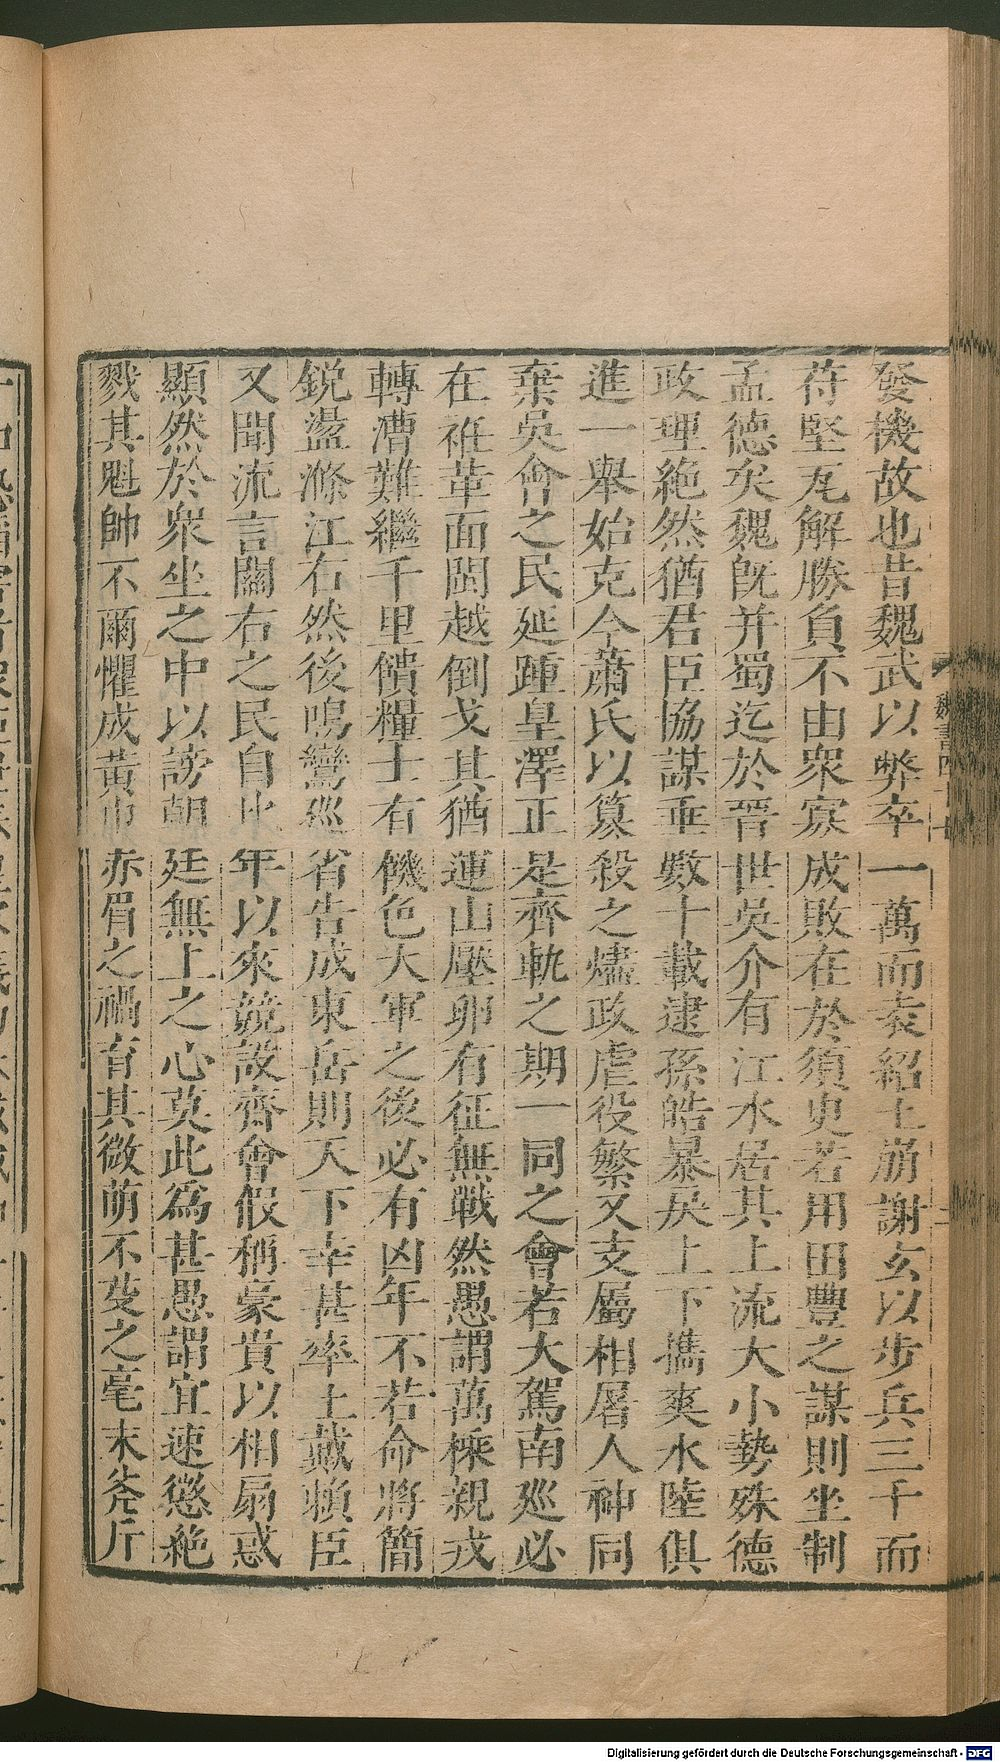 發機故也昔魏武以弊卒一萬而袁紹土崩謝玄以步兵三千而
苻堅瓦解勝負不由衆寡成敗在於須臾若用田豐之謀則坐制
孟德矣魏旣并蜀迄於晉世吳介有江水居其上流大小勢殊德
政理絶然猶君臣協謀垂數十載逮孫皓暴戾上下攜爽水陸俱
進一舉始克今蕭氏以簒殺之燼政虐役繁又支屬相屠人神同
棄吳會之民延踵皇澤正是齊軌之期一同之會若大駕南廵必
在袵革面閩越倒戈其猶連山壓卵有征無戰然愚謂萬乗親戎
轉漕難繼千里饋糧士有饑色大軍之後必有凶年不若命將簡
銳盪滌江右然後鳴鸞廵省告成東岳則天下幸甚率土戴賴臣
又聞流言關右之民自比年以來競設齊會假稱豪貴以相扇惑
顯然於衆坐之中以謗朝廷無上之心莫此爲甚愚謂宜速懲絶
戮其魁帥不爾懼成黃巾赤眉之禍育其微萌不芟之毫末斧斤
魏書四十七
Digitalisierung gefördert durch die Deutsche Forschungsgemeinschaft - DFG